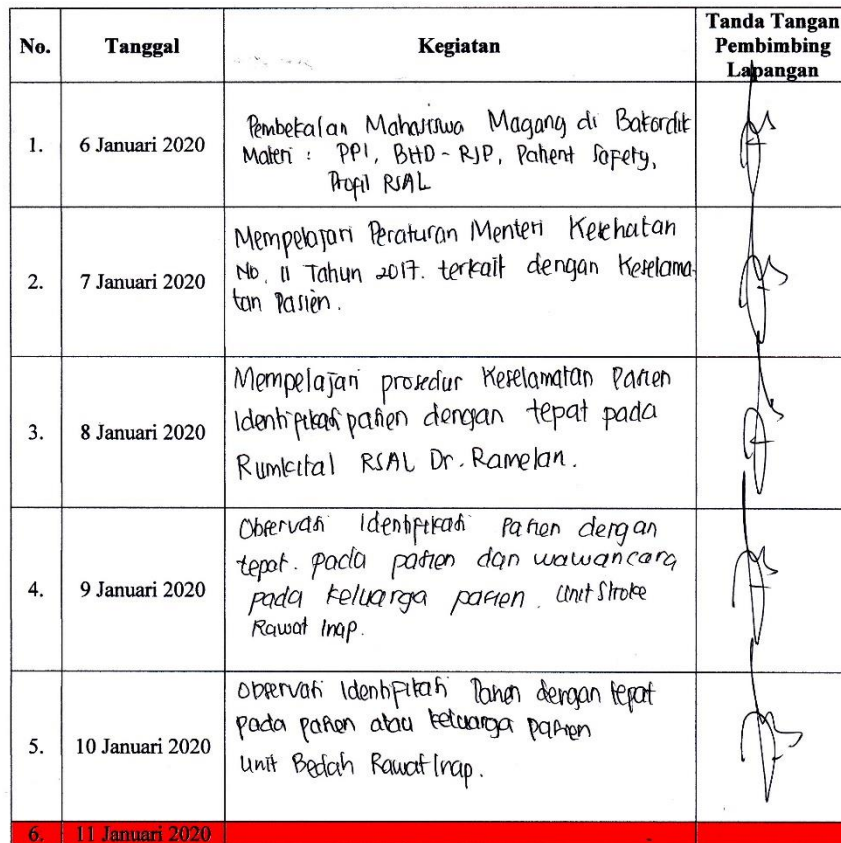 No.
Tanggal
Kegiatan
Tanda Tangan
Pembimbing
Lapangan
1.
6 Januari 2020
Pembekalan Mahasiswa Magang di Bakordik
Materi : PPI, BHD - RJP, Patient Safety,
Profil RSAL
2.
7 Januari 2020
Mempelajari Peraturan Menteri Kesehatan
No. 11 Tahun 2017. terkait dengan Keselama-
tan Pasien.
3.
8 Januari 2020
Mempelajari prosedur Keselamatan Pasien
Identifikasi pasien dengan tepat pada
Rumkital RSAL Dr. Ramelan.
4.
9 Januari 2020
Observasi Identifikasi Pasien dengan
tepat. pada pasien dan wawancara
pada keluarga pasien. Unit Stroke
Rawat Inap.
5.
10 Januari 2020
Observasi Identifikasi Pasien dengan tepat
pada pasien atau keluarga pasien
Unit Bedah Rawat Inap.
6.
11 Januari 2020